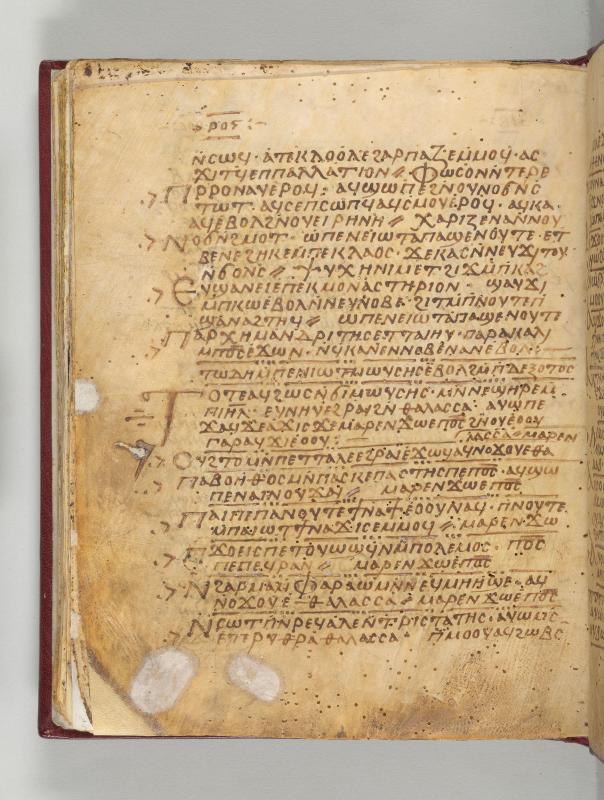 ⲣⲟⲥ:–
ⲛ̄ⲥⲱϥ · ⲁⲧⲉⲕⲗⲟⲟⲗⲉϩⲁⲣⲡⲁⲍⲉⲙ̄ⲙⲟϥ · ⲁⲥ
ϫⲓⲧϥⲉⲡⲡⲁⲗⲗⲁⲧⲓⲟⲛ ⸗ ⲫⲱⲥⲟⲛⲛ̄ⲧⲉⲣⲉ
ⲡⲣ̄ⲣⲟⲛⲁⲩⲉⲣⲟϥ : ⲁϥϣⲱⲡⲉϩⲛⲟⲩⲛⲟϭⲛ̄ⲥ
ⲧⲱⲧ · ⲁϥⲥⲉⲡⲥⲱⲡϥⲁϥⲥⲙⲟⲩⲉⲣⲟϥ · ⲁϥⲕⲁ
ⲁϥⲉⲃⲟⲗϩⲛⲟⲩⲉⲓⲣⲏⲛⲏ ⸗ ⲭⲁⲣⲓⲍⲉⲛⲁⲛⲛⲟⲩ
ⲛⲟϭⲛ̄ϩⲙⲟⲧ · ⲱⲡⲉⲛⲉⲓⲱⲧⲁⲡⲁϣⲉⲛⲟⲩⲧⲉ · ⲉⲧ
ⲃⲉⲛⲉϩⲏⲕⲉⲙ̄ⲡⲉⲕⲗⲁⲟⲥ · ϫⲉⲕⲁⲥⲛ̄ⲛⲉⲩϫⲓⲧⲟⲩ
ⲛ̄ϭⲟⲛⲥ ⸗ ⲯⲩⲭⲏⲛⲓⲙⲉⲧϩⲓϫⲙ̄ⲡⲕⲁϩ
ⲉⲩϣⲁⲛⲉⲓⲉⲡⲉⲕⲙⲟⲛⲁⲥⲧⲏⲣⲓⲟⲛ · ϣⲁⲩϫⲓ
ⲙ̄ⲡⲕⲱⲉⲃⲟⲗⲛ̄ⲛⲉⲩⲛⲟⲃⲉ · ϩⲓⲧⲙ̄ⲡⲛⲟⲩⲧⲉⲡ
ϣⲁⲛⲁϩⲧⲏϥ ⸗ ⲱⲡⲉⲛⲉⲓⲱⲧⲁⲡⲁϣⲉⲛⲟⲩⲧⲉ
ⲡⲁⲣⲭⲏⲙⲁⲛⲇⲣⲓⲧⲏⲥⲉⲧⲧⲁⲓⲏⲩ · ⲡⲁⲣⲁⲕⲁⲗⲓ
ⲙ̄ⲡⲟ̅ⲥ̅ⲉϫⲱⲛ · ⲛϥⲕⲁⲛⲉⲛⲛⲟⲃⲉⲛⲁⲛⲉⲃⲟⲗ :–
ⲧⲟⲧⲉⲁϥϩⲱⲥⲛ̄ϭⲓⲙⲱⲩⲥⲏⲥ · ⲙⲛ̄ⲛⲉϣⲏⲣⲉⲙ̄
ⲡⲓⲏⲗ · ⲉⲩⲛⲏⲩⲉϩⲣⲁⲓϩⲛ̄ⲑⲁⲗⲁⲥⲥⲁ · ⲁⲩⲱⲡⲉ
ϫⲁϥϫⲉⲁϫⲓⲥϫⲉⲙⲁⲣⲉⲛϫⲱⲉⲡⲟ̅ⲥ̅ϩⲛⲟⲩⲉⲟⲟⲩ
ⲅⲁⲣⲁϥϫⲓⲉⲟⲟⲩ :– ⲗⲁⲥⲥⲁ ⸗ ⲙⲁⲣⲉⲛ
ⲟⲩϩⲧⲟⲙⲛ̄ⲡⲉⲧⲧⲁⲗⲉⲉϩⲣⲁⲓⲉϫⲱϥⲁϥⲛⲟϫⲟⲩⲉⲑⲁ
ⲡⲁⲃⲟⲏⲑⲟⲥⲙⲛ̄ⲡⲁⲥⲕⲉⲡⲁⲥⲧⲏⲥⲡⲉⲡⲟ̅ⲥ̅ · ⲁϥϣⲱ
ⲡⲉⲛⲁⲓⲛⲟⲩϫⲁⲓ ⸗ ⲙⲁⲣⲉⲛϫⲱⲉⲡⲟ̅ⲥ̅
ⲡⲁⲓⲡⲉⲡⲁⲛⲟⲩⲧⲉϯⲛⲁϯⲉⲟⲟⲩⲛⲁϥ · ⲡⲛⲟⲩⲧⲉ
ⲙ̄ⲡⲁⲓⲱⲧϯⲛⲁϫⲓⲥⲉⲙⲙⲟϥ ⸗ ⲙⲁⲣⲉⲛϫⲱ
ⲡϫⲟⲉⲓⲥⲡⲉⲧⲟⲩⲱϣϥⲛⲙ̄ⲡⲟⲗⲉⲙⲟⲥ · ⲡⲟ̅ⲥ̅
ⲡⲉⲡⲉϥⲣⲁⲛ ⸗ ⲙⲁⲣⲉⲛϫⲱⲉⲡⲟ̅ⲥ̅
ⲛ̄ϩⲁⲣⲙⲁⲙ̄ⲫⲁⲣⲁⲱⲙⲛ̄ⲛⲉϥⲙⲏⲏϣⲉ · ⲁϥ
ⲛⲟϫⲟⲩⲉⲑⲁⲗⲁⲥⲥⲁ ⸗ ⲙⲁⲣⲉⲛϫⲱⲉⲡⲟ̅ⲥ̅
ⲛ̄ⲥⲱⲧⲡ̄ⲛ̄ⲣⲉϥⲁⲗⲉⲛ̄ⲧⲣⲓⲥⲧⲁⲧⲏⲥ · ⲁϥⲱⲙ̄ⲥ
ⲉⲧⲉⲣⲩⲑⲣⲁⲑⲁⲗⲁⲥⲥⲁ · ⲡ̄ⲙⲟⲟⲩⲁϥϩⲱⲃⲥ